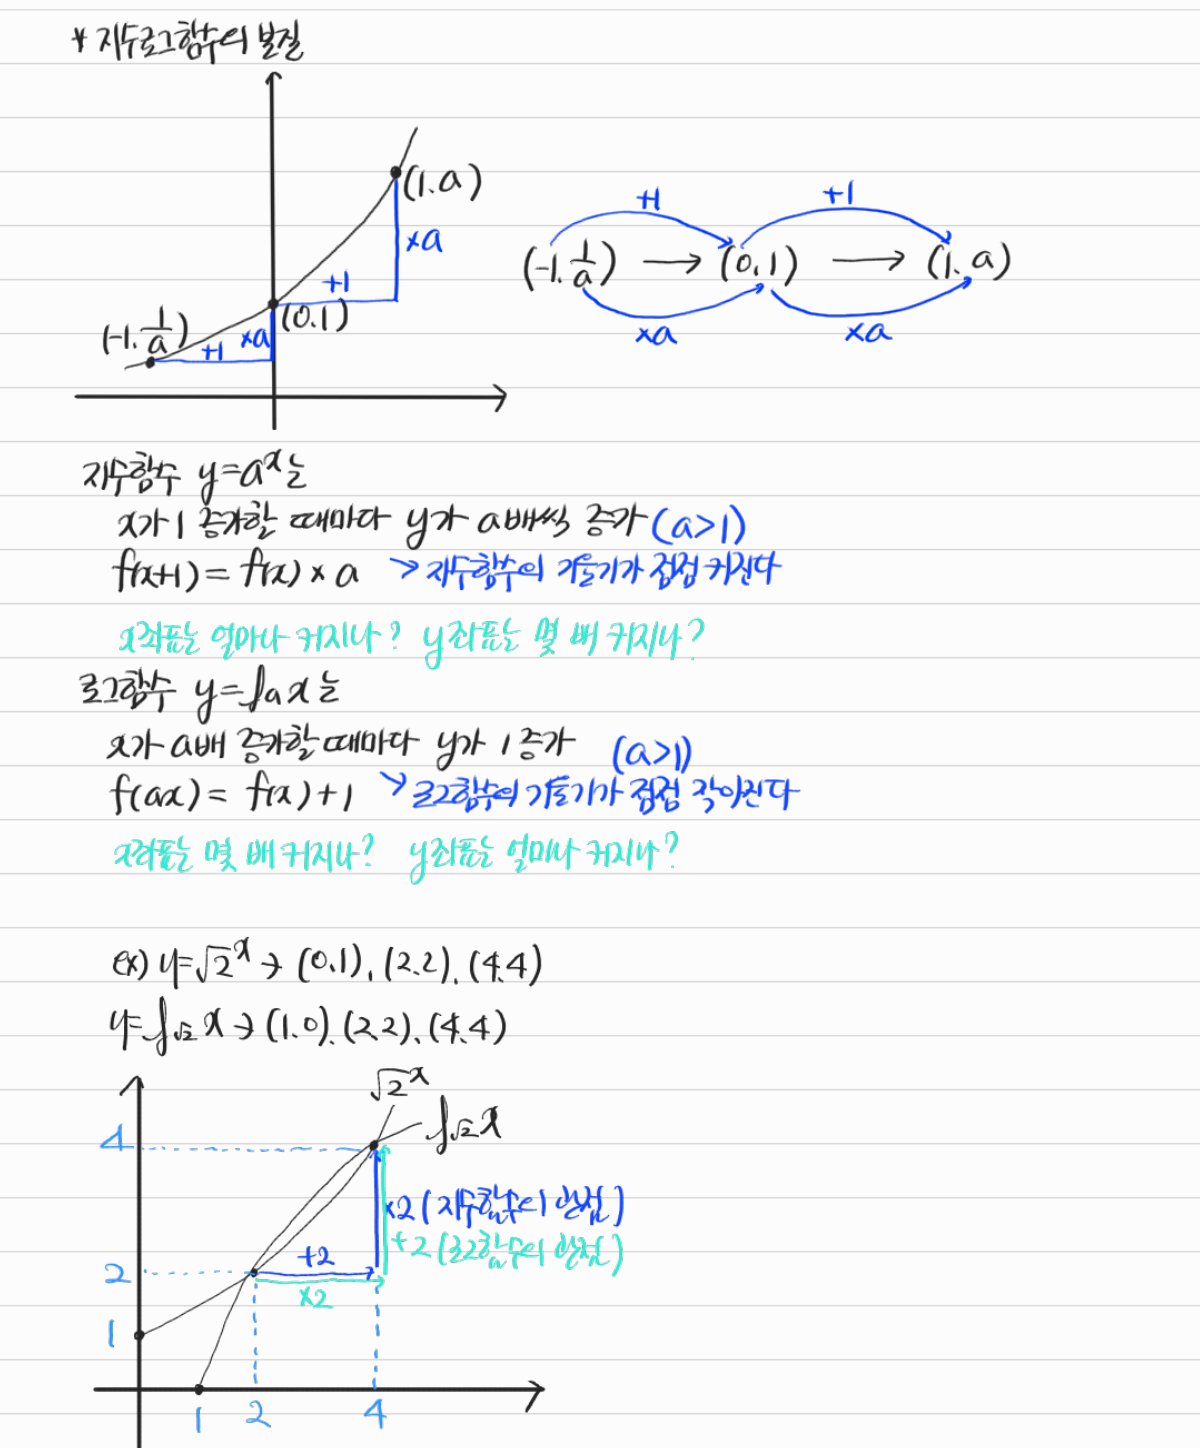 * 지수로그함수의 본질
(1.a)
×a
+1
(0.1)
(-1.1/a)
+1 ×a
+1 +1
(-1.1/a) → (0.1) → (1.a)
×a ×a
지수함수 y=a^x는
x가 1 증가할 때마다 y가 a배씩 증가 (a>1)
f(x+1) = f(x) × a → 지수함수의 기울기가 점점 커진다
x좌표는 얼마나 커지나? y좌표는 몇 배 커지나?
로그함수 y=lax는
x가 a배 증가할 때마다 y가 1 증가 (a>1)
f(ax) = f(x)+1 → 로그함수의 기울기가 점점 작아진다
x좌표는 몇 배 커지나? y좌표는 얼마나 커지나?
ex) y=√2^x → (0.1), (2.2), (4.4)
y=l√2 x → (1.0), (2.2), (4.4)
√2^x
l√2 x
4
×2 (지수함수의 관점)
+2 (로그함수의 관점)
2
+2
×2
1
1 2 4